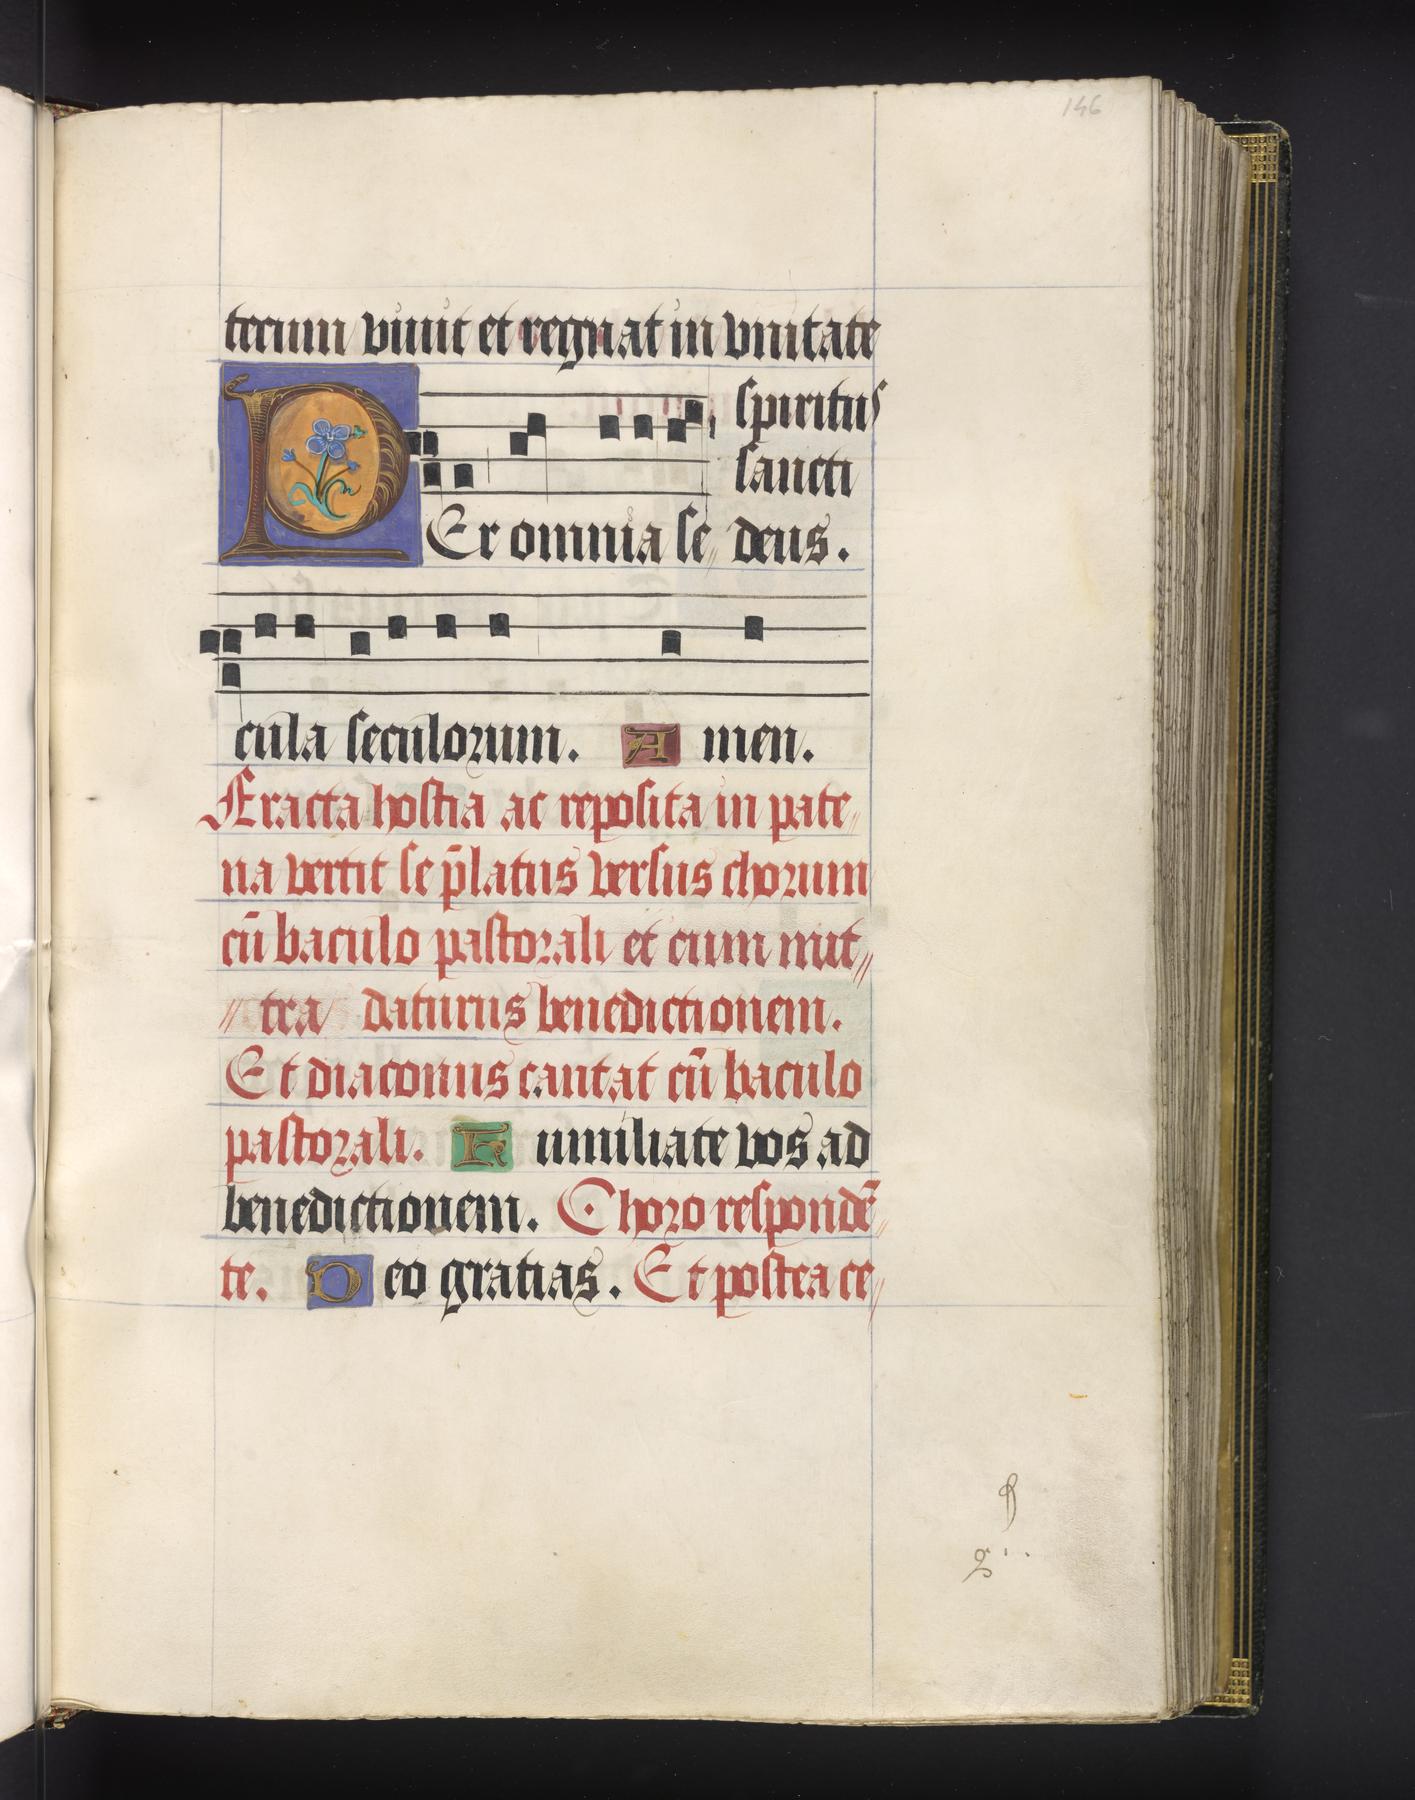 146
tecum viuit et regnat in vnitate
spiritus
sancti
P Er omnia se„ deus.
cula seculorum. A men.
Fracta hostia ac reposita in pate„
na vertit se p̄latus versus chorum
cū baculo pastorali et cum mit„
„tra daturus benedictionem.
Et diaconus cantat cū baculo
pastorali. H umiliate vos ad
benedictionem. Choro respondē„
te. D eo gratias. Et postea ce„